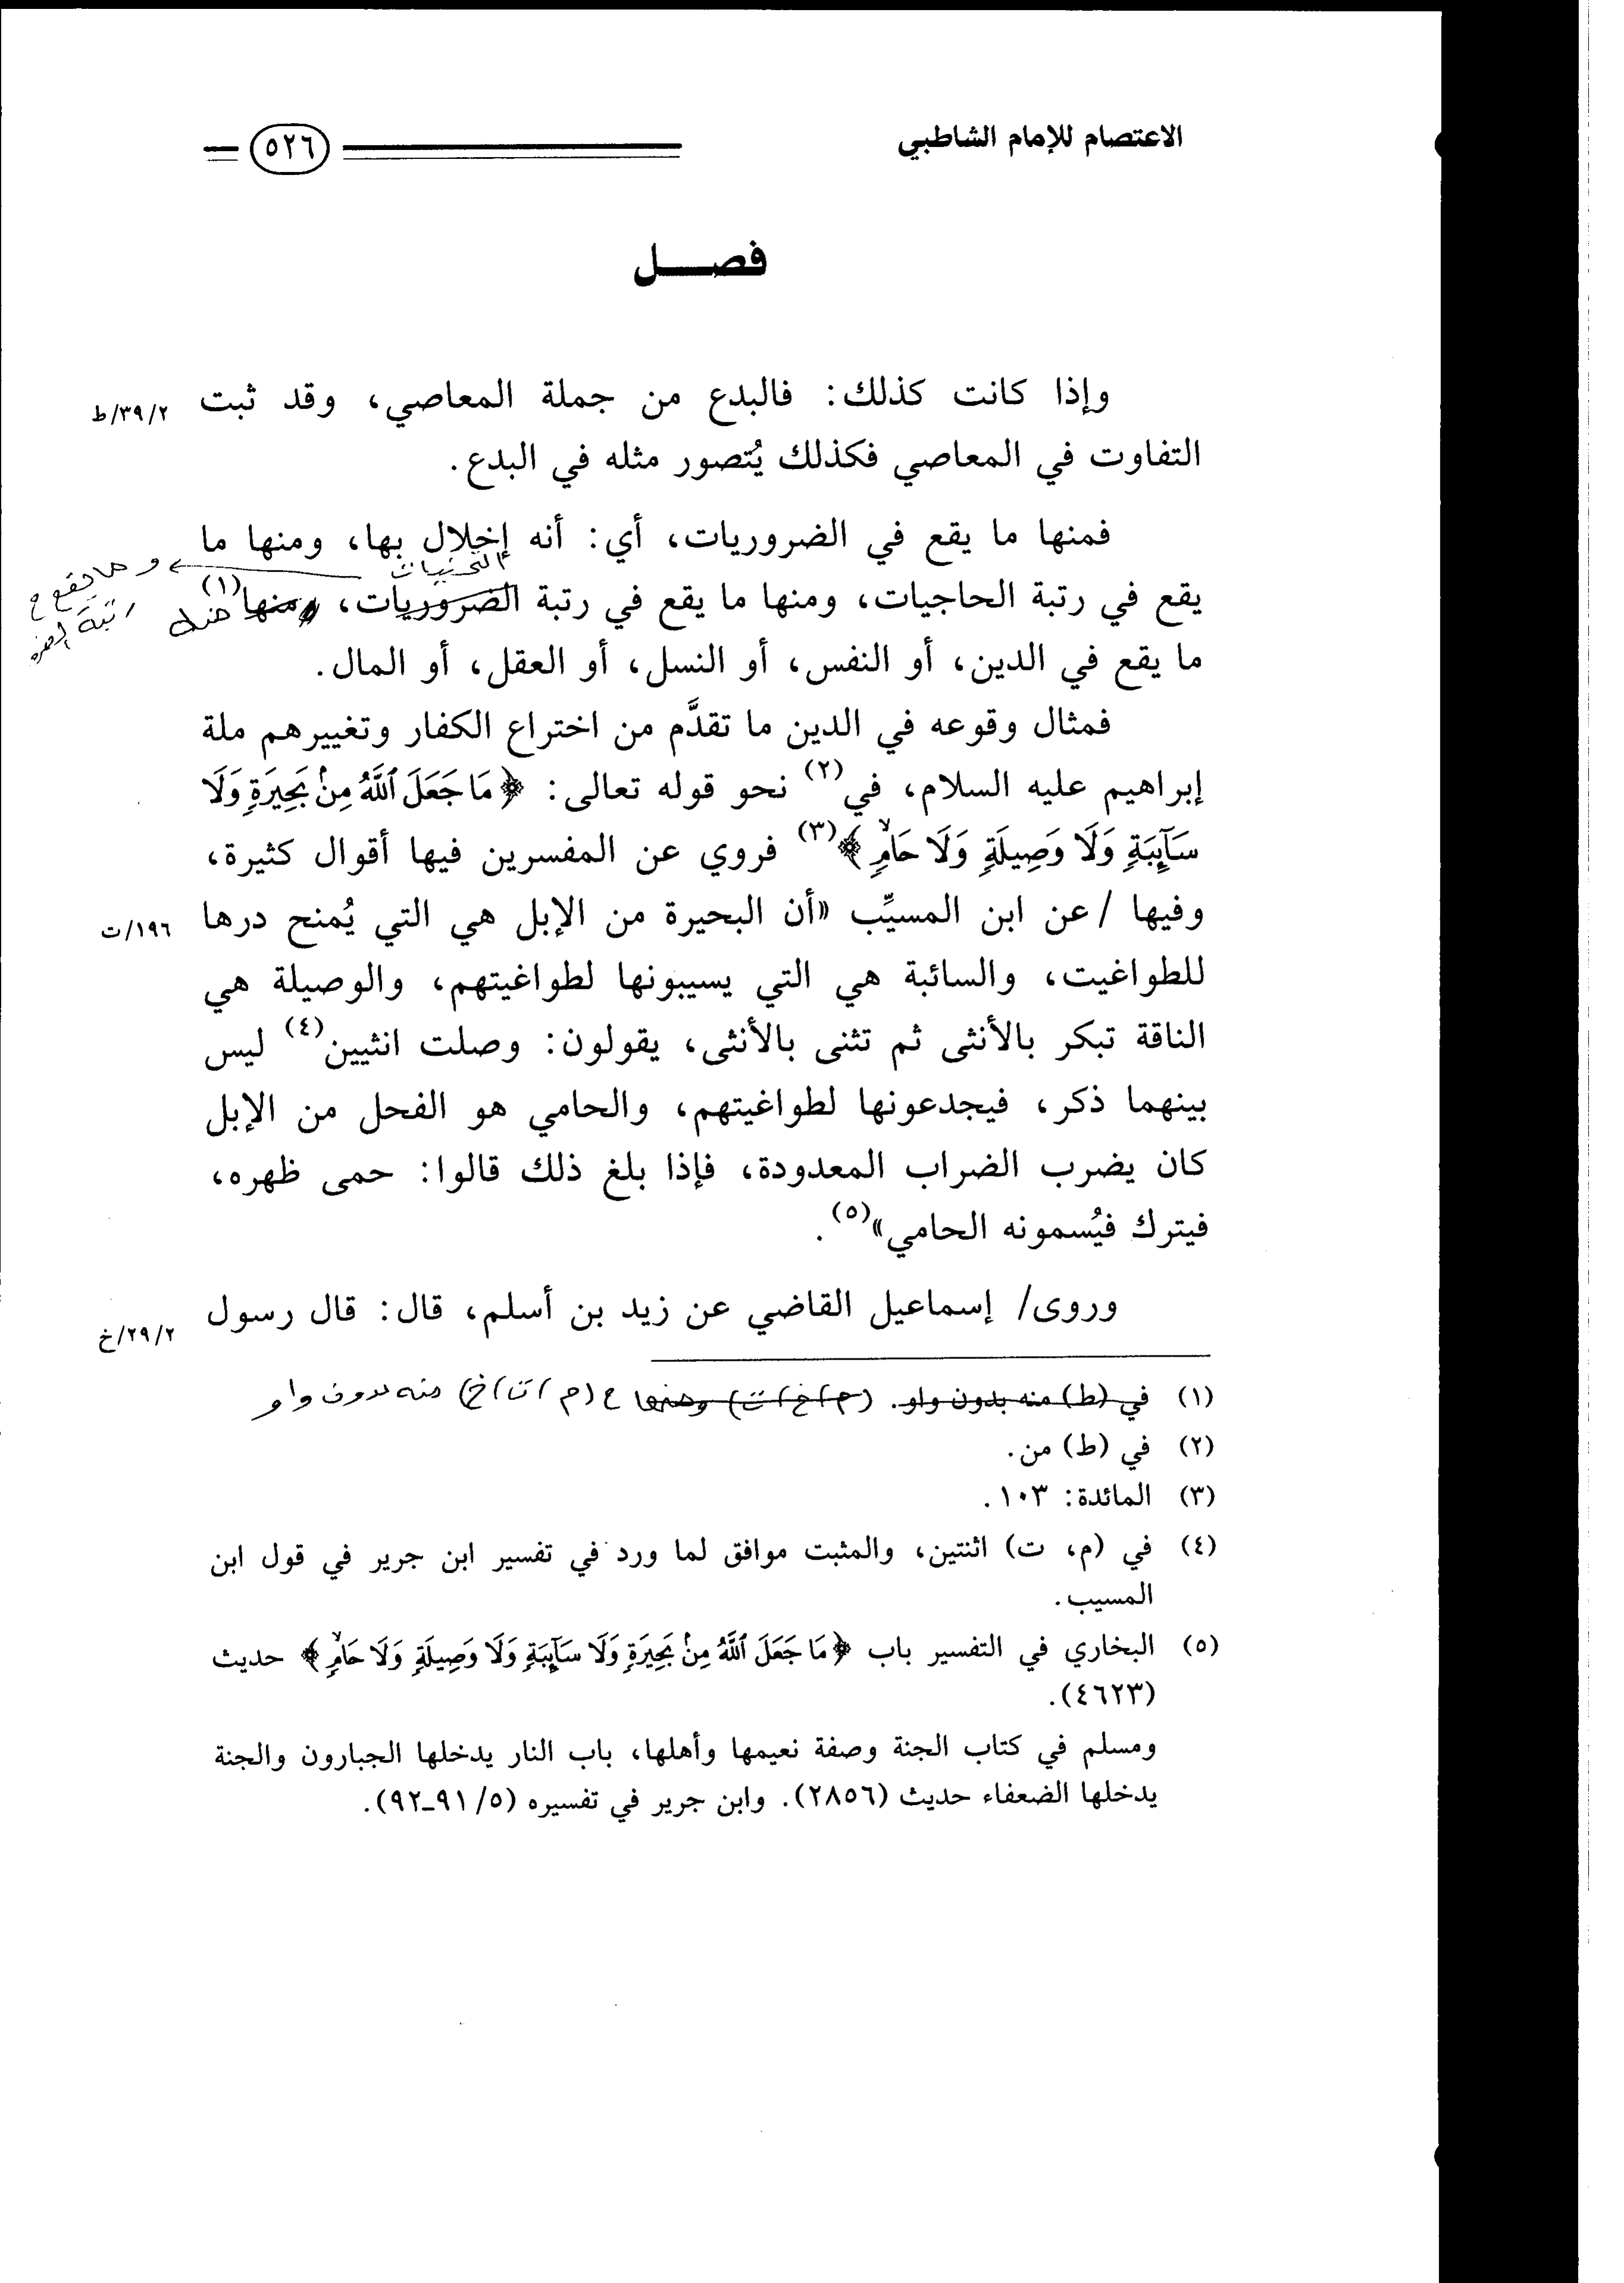 الاعتصام للإمام الشاطبي
٥٢٦
فصـــــل
وإذا كانت كذلك: فالبدع من جملة المعاصي، وقد ثبت
٣٩/٢/ط
التفاوت في المعاصي فكذلك يُتصور مثله في البدع.
فمنها ما يقع في الضروريات، أي: أنه إخلال بها، ومنها ما
التحسينيات
وما يقع في
رتبة
يقع في رتبة الحاجيات، ومنها ما يقع في رتبة الضروريات، ومنها(١) منه
ما يقع في الدين، أو النفس، أو النسل، أو العقل، أو المال.
فمثال وقوعه في الدين ما تقدَّم من اختراع الكفار وتغييرهم ملة
إبراهيم عليه السلام، في(٢) نحو قوله تعالى: ﴿مَا جَعَلَ ٱللَّهُ مِنۢ بَحِيرَةٖ وَلَا
سَآئِبَةٖ وَلَا وَصِيلَةٖ وَلَا حَامٖۙ﴾(٣) فروي عن المفسرين فيها أقوال كثيرة،
وفيها / عن ابن المسيِّب «أن البحيرة من الإبل هي التي يُمنح درها
١٩٦/ت
للطواغيت، والسائبة هي التي يسيبونها لطواغيتهم، والوصيلة هي
الناقة تبكر بالأنثى ثم تثنى بالأنثى، يقولون: وصلت انثيين(٤) ليس
بينهما ذكر، فيجدعونها لطواغيتهم، والحامي هو الفحل من الإبل
كان يضرب الضراب المعدودة، فإذا بلغ ذلك قالوا: حمى ظهره،
فيترك فيُسمونه الحامي»(٥).
وروى/ إسماعيل القاضي عن زيد بن أسلم، قال: قال رسول
٢٩/٢/خ
(١) في (ط) منه بدون واو. (م، خ، ت) ومنها في (م، ت، خ) منه بدون واو
(٢) في (ط) من.
(٣) المائدة: ١٠٣.
(٤) في (م، ت) اثنتين، والمثبت موافق لما ورد في تفسير ابن جرير في قول ابن
المسيب.
(٥) البخاري في التفسير باب ﴿مَا جَعَلَ ٱللَّهُ مِنۢ بَحِيرَةٖ وَلَا سَآئِبَةٖ وَلَا وَصِيلَةٖ وَلَا حَامٖۙ﴾ حديث
(٤٦٢٣).
ومسلم في كتاب الجنة وصفة نعيمها وأهلها، باب النار يدخلها الجبارون والجنة
يدخلها الضعفاء حديث (٢٨٥٦). وابن جرير في تفسيره (٥/ ٩١ـ٩٢).